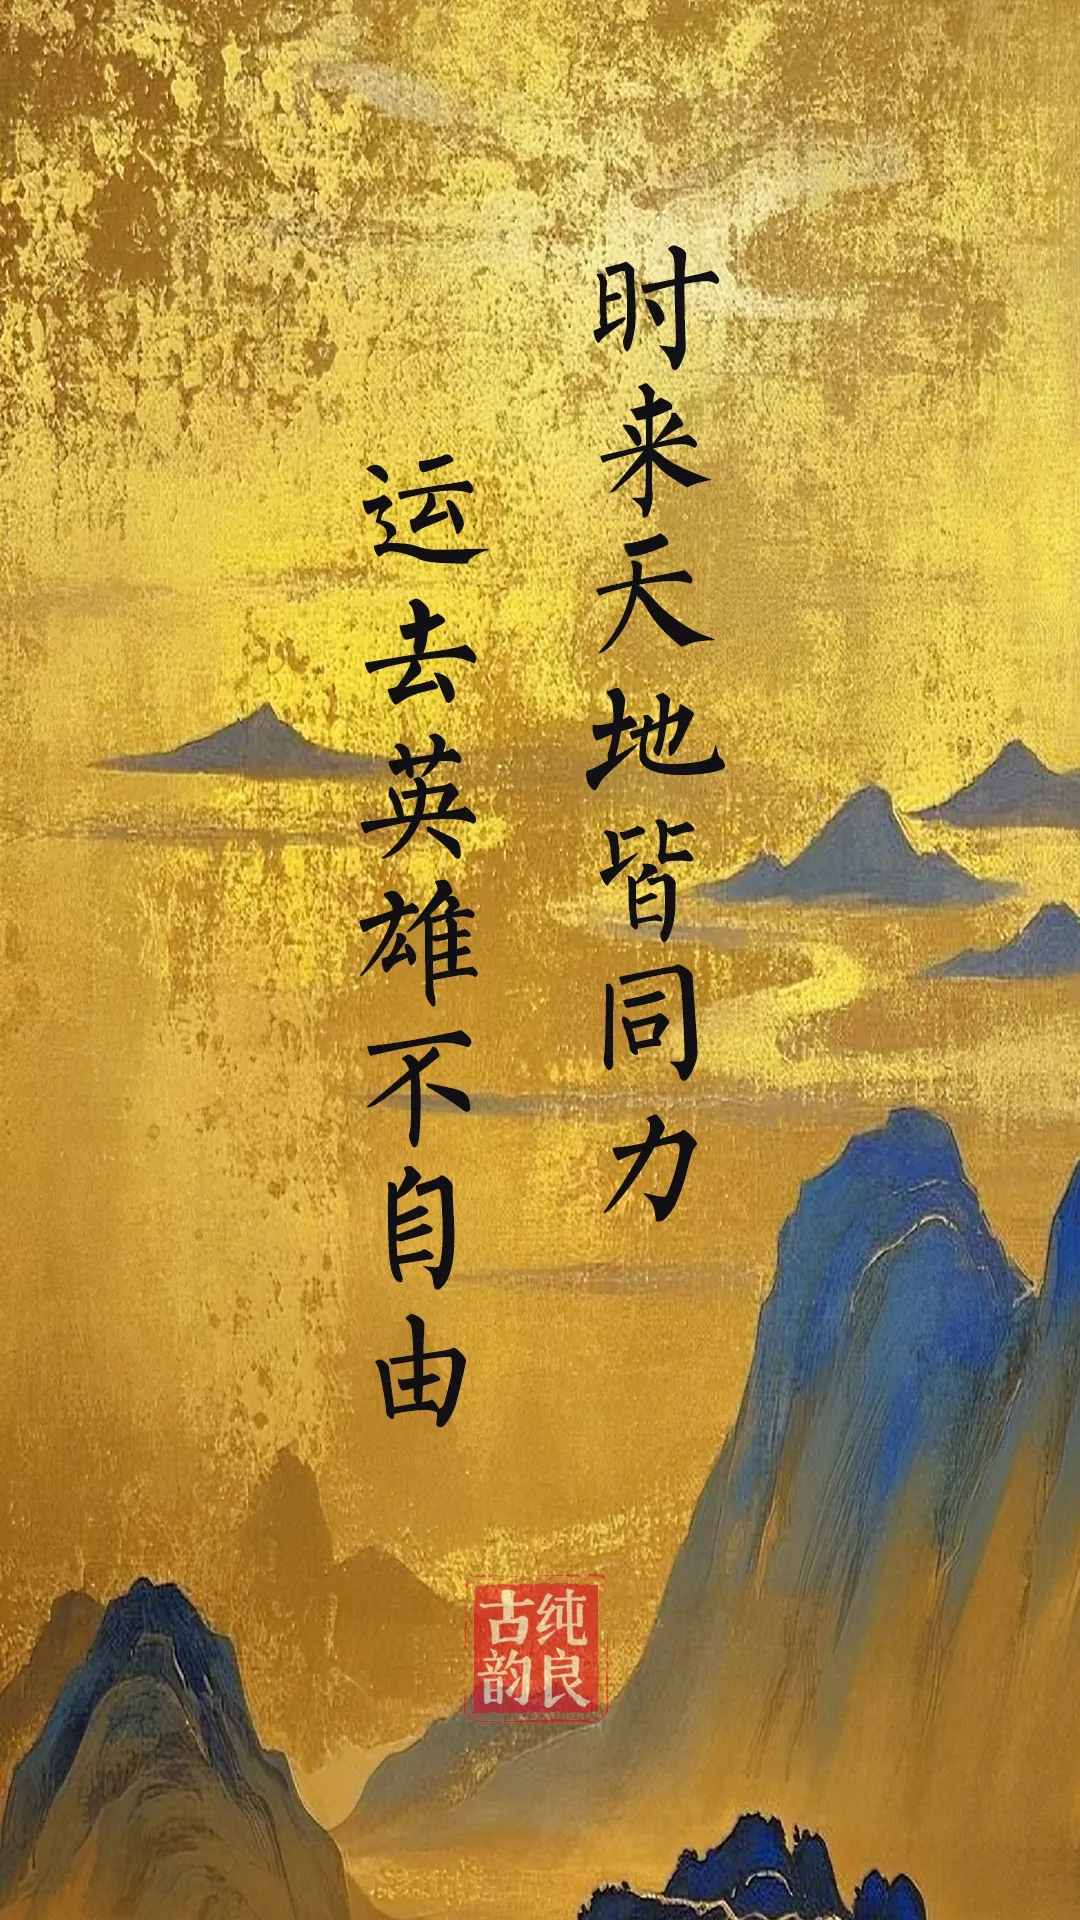 时来天地皆同力
运去英雄不自由
纯良
古韵